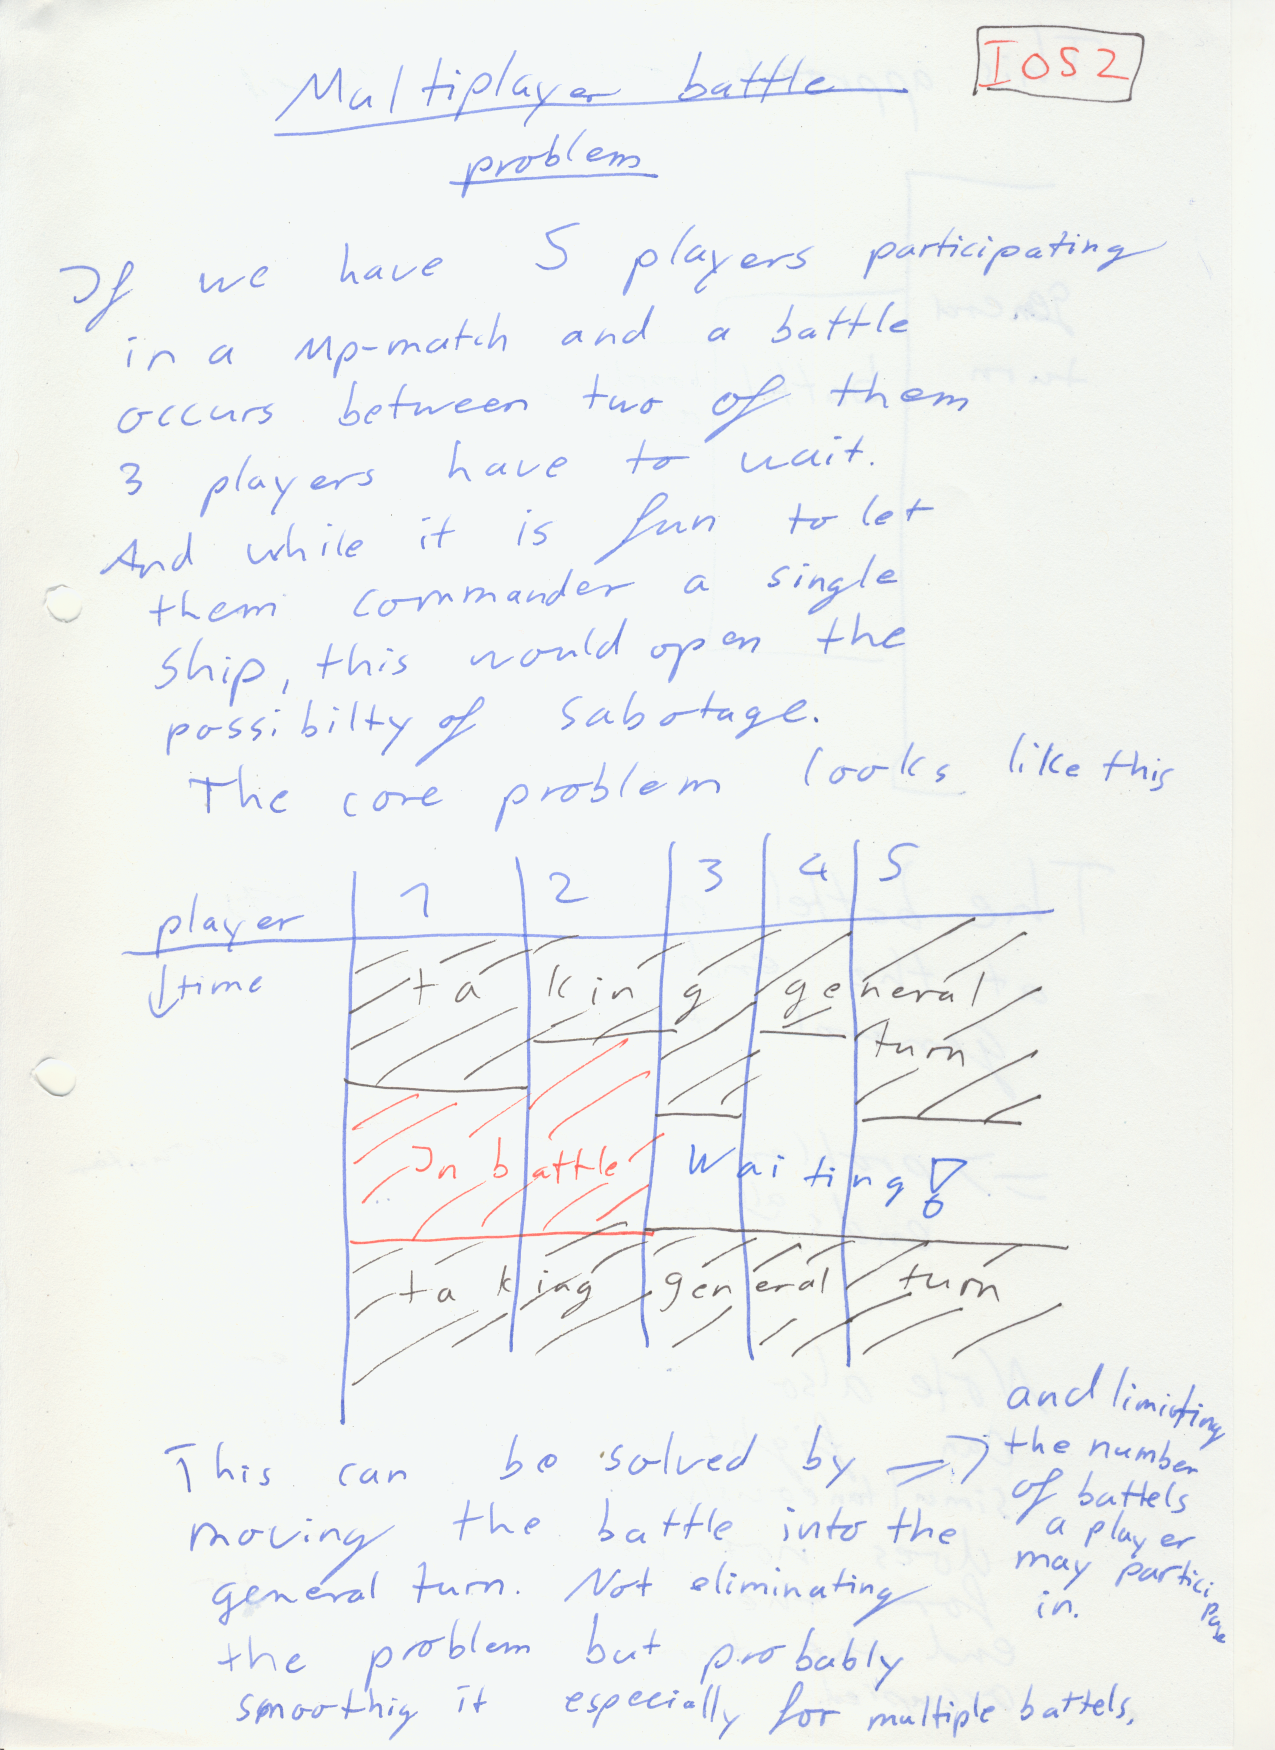 IOS2
Multiplayer battle
problem
If we have 5 players participating
in a Mp-match and a battle
occurs between two of them
3 players have to wait.
And while it is fun to let
them commander a single
ship, this would open the
possibilty of sabotage.
The core problem looks like this
player 1 2 3 4 5
↓time
taking general
turn
In battle Waiting!
taking general turn
This can be solved by =>
moving the battle into the
general turn. Not eliminating
the problem but probably
smoothig it especially for multiple battels.
and limiting
the number
of battels
a player
may participate
in.